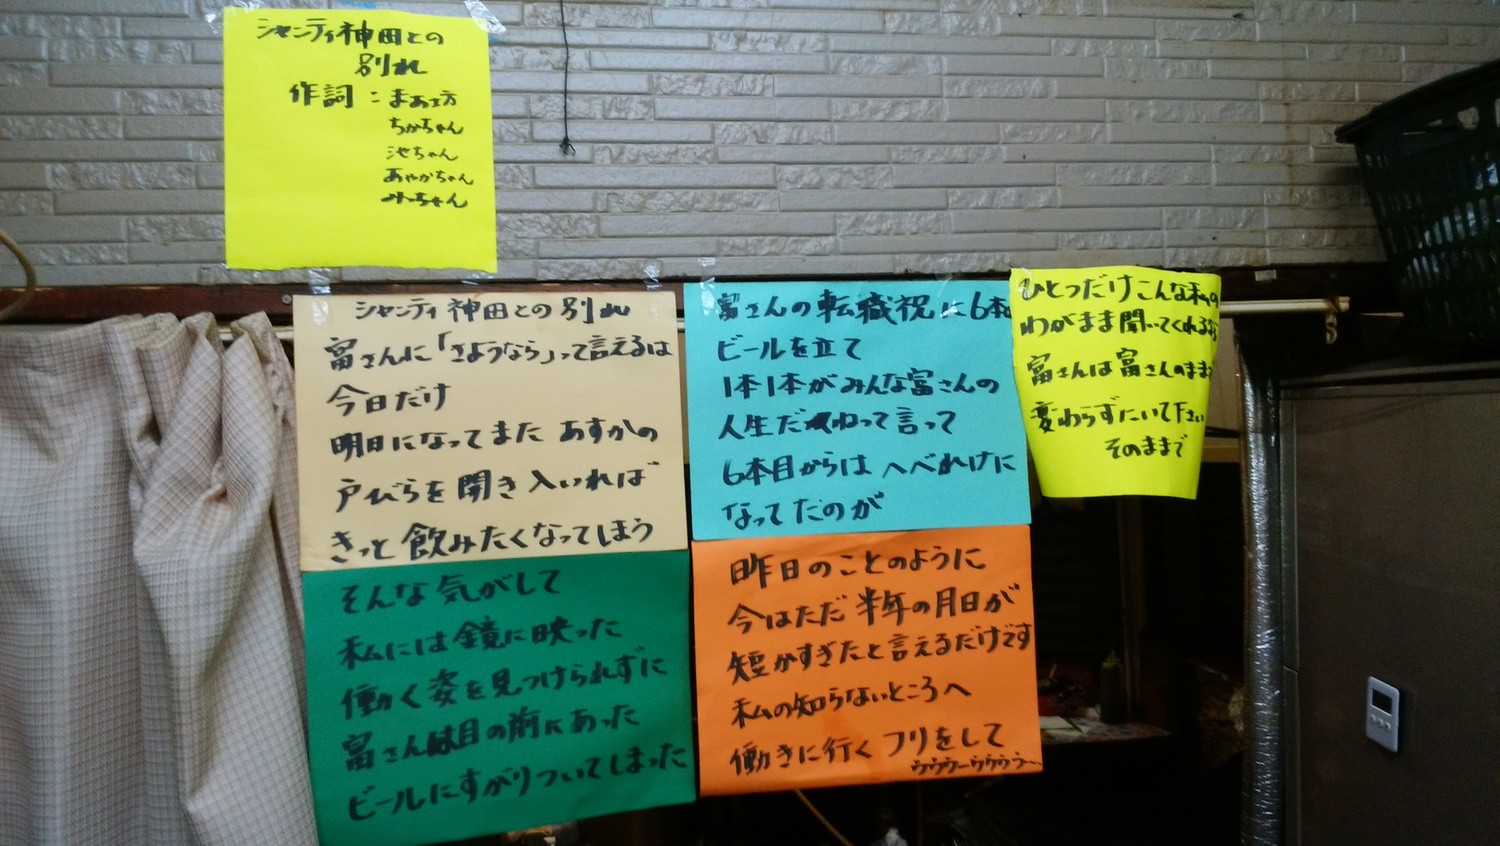 シャンティ神田との
別れ
作詞：まあ坊
ちかちゃん
池ちゃん
あやかちゃん
みっちゃん
シャンティ神田との別れ
富さんに「さようなら」って言えるは
今日だけ
明日になってまた あすかの
戸びらを開き入いれば
きっと飲みたくなってしまう
そんな気がして
私には鏡に映った
働く姿を見つけられずに
富さんは目の前にあった
ビールにすがりついてしまった
富さんの転職祝に6本
ビールを立て
1本1本がみんな富さんの
人生だねって言って
6本目からは へべれけに
なってたのが
昨日のことのように
今はただ 半年の月日が
短かすぎたと言えるだけです
私の知らないところへ
働きに行く フリをして
ウウウーウウウウ～
ひとつだけこんな私の
わがまま聞いてくれるなら
富さんは富さんのままで
変わらずにいて下さい
そのままで